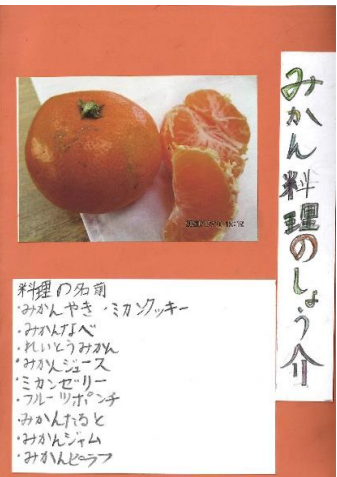 みかん料理のしょう介
料理の名前
・みかんやき・ミカンクッキー
・みかんなべ
・れいとうみかん
・みかんジュース
・ミカンゼリー
・フルーツポンチ
・みかんたると
・みかんジャム
・みかんピラフ